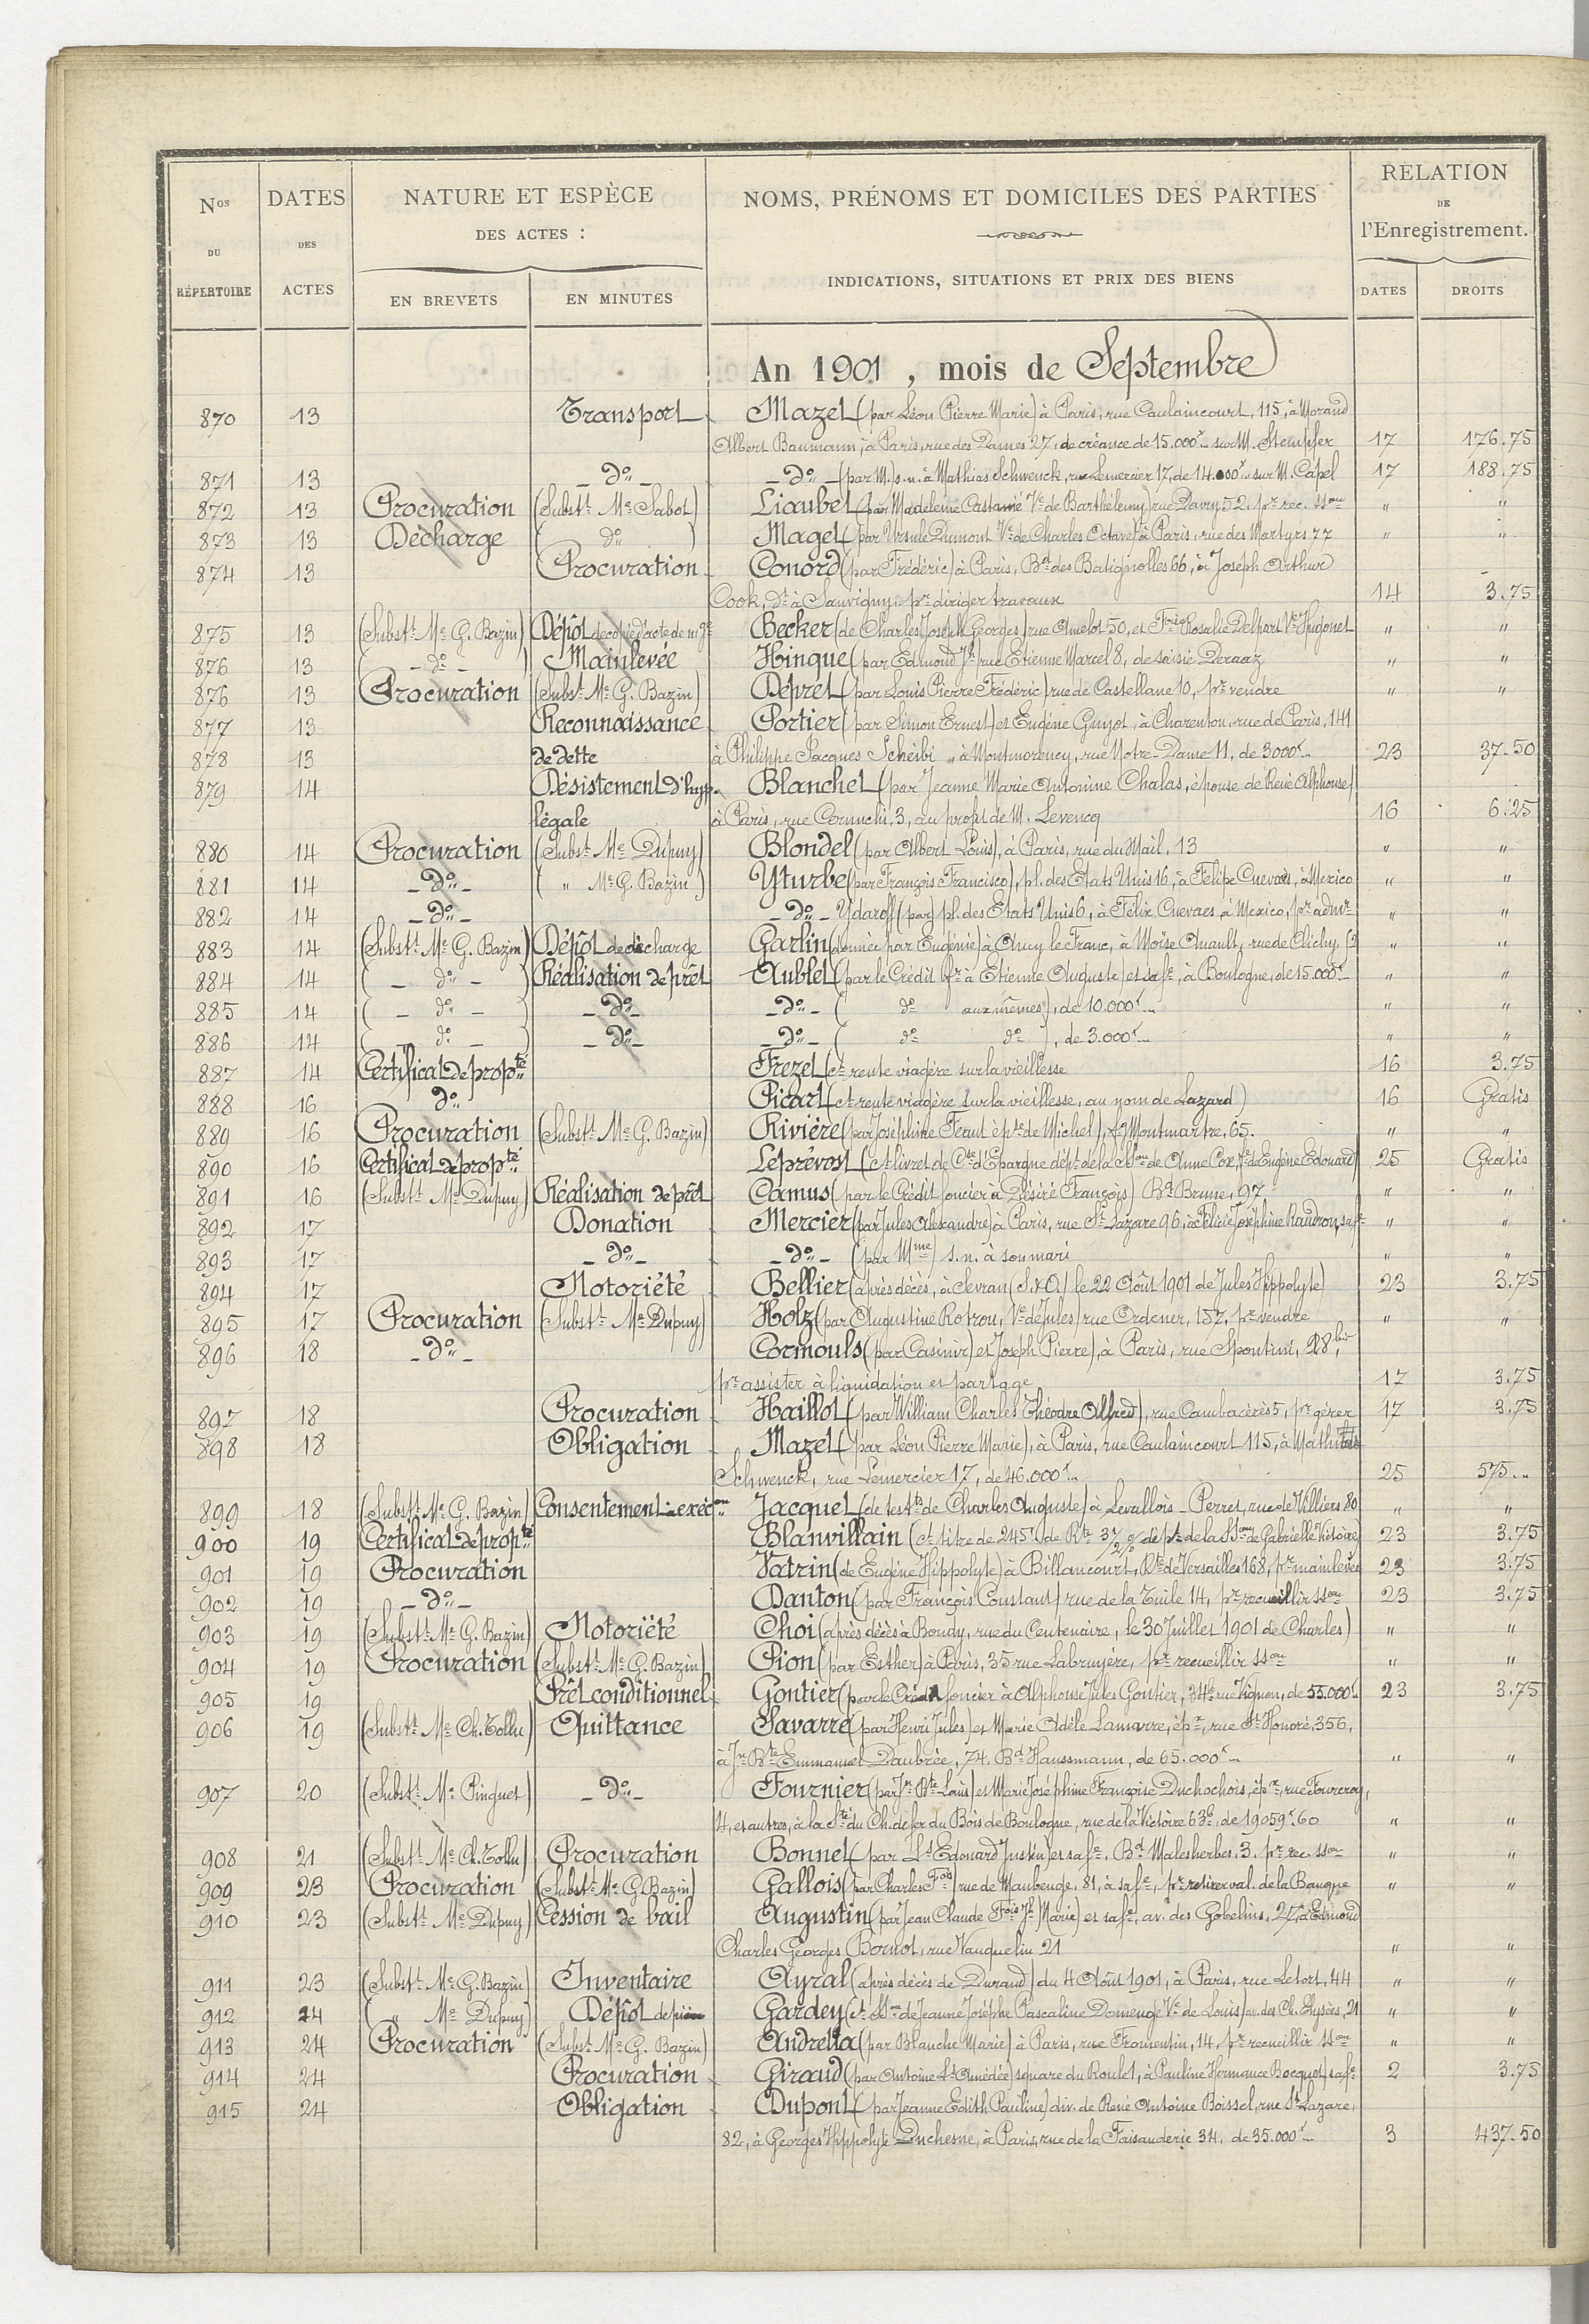 Nos DU RÉPERTOIRE
DATES DES ACTES
NATURE ET ESPÈCE DES ACTES :
EN BREVETS
EN MINUTES
NOMS, PRÉNOMS ET DOMICILES DES PARTIES
INDICATIONS, SITUATIONS ET PRIX DES BIENS
RELATION DE l'Enregistrement.
DATES
DROITS
An 1901, mois de Septembre
870 13 Transport Mazet (par Léon Pierre Marie) à Paris, rue Caulaincourt, 115, à Morand
Albert Baumann, à Paris, rue des Dames 27, de créance de 15.000f sur M. Stempfer 17 176.75
871 13 - do - - do - (par M.) s.n. à Mathias Schwenck, rue Lemercier 17, de 14.000f sur M. Capel 17 188.75
872 13 Procuration (Subst. Me Sabot) Liaubet (par Madeleine Castamé Ve de Barthélemy) rue Davy 52, pr rec. sson " "
873 13 Décharge ( do ) Maget (par Ursule Dumont Ve de Charles Octave) à Paris, rue des Martyrs 77 " "
874 13 Procuration Conord (par Frédéric) à Paris, Bd des Batignolles 66, à Joseph Arthur
Cook, dt à Sauvigny, pr diriger travaux 14 3.75
875 13 (Subst. Me G. Bazin) Dépôt de copie d'acte de mge Becker (de Charles Joseph Georges) rue Amelot 50, et Foise Rosalie Delpart Ve Hugonet " "
876 13 ( - do - ) Mainlevée Hinque (par Edmond Jh) rue Etienne Marcel 8, de saisie Deraaz " "
876 13 Procuration (Subst. Me G. Bazin) Dépret (par Louis Pierre Frédéric) rue de Castellane 10, pr vendre " "
877 13 Reconnaissance Portier (par Simon Ernest) et Eugène Guyot, à Charenton, rue de Paris, 141
878 13 de dette à Philippe Jacques Scheibi, à Montmorency, rue Notre-Dame 11, de 3000f 23 37.50
879 14 Désistement d'hyp. Blanchet (par Jeanne Marie Antonine Chalas, épouse de René Alphonse)
légale à Paris, rue Cernuschi, 3, au profit de M. Levencq 16 6.25
880 14 Procuration (Subst. Me Dupuy) Blondel (par Albert Louis), à Paris, rue du Mail, 13 " "
881 14 - do - ( " Me G. Bazin ) Yturbe (par François Francisco), pl. des Etats Unis 16, à Felipe Cuevas, à Mexico " "
882 14 - do - - do - Ydaroff (par) pl. des Etats Unis 6, à Félix Cuevaes à Mexico, pr admr " "
883 14 (Subst. Me G. Bazin) Dépôt de décharge Garlin (donnée par Eugénie) à Ancy le Franc, à Moïse Anault, rue de Clichy, " "
884 14 ( - do - ) Réalisation de prêt Aublet (par le Crédit fr à Etienne Auguste) et sa fe, à Boulogne, de 15.000f " "
885 14 ( - do - ) - do - - do - ( do aux mêmes), de 10.000f " "
886 14 ( - do - ) - do - - do - ( do do ), de 3.000f " "
887 14 Certificat de propté Frezet (ct rente viagère sur la vieillesse 16 3.75
888 16 do Picart (ct rente viagère sur la vieillesse, au nom de Lazard) 16 Gratis
889 16 Procuration (Subst. Me G. Bazin) Rivière (par Joséphine Traut épse de Michel), fg Montmartre, 65. " "
890 16 Certificat de propté Leprévost (ct livret de Csse d'Epargne dépt de la sson de Anne Cox, Ve de Eugène Edouard) 25 Gratis
891 16 (Subst. Me Dupuy) Réalisation de prêt Camus (par le Crédit foncier à Désiré François) Bd Brune, 97 " "
892 17 Donation Mercier (par Jules Alexandre) à Paris, rue St Lazare 96, à Félicie Joséphine Raudron, sa fe " "
893 17 - do - - do - (par Mme) s.n. à son mari " "
894 17 Notoriété Bellier (après décès, à Sevran (S.&O.) le 22 Août 1901 de Jules Hippolyte) 23 3.75
895 17 Procuration (Subst. Me Dupuy) Holz (par Augustine Rotrou, Ve de Jules) rue Ordener, 157, pr vendre " "
896 18 - do - Cormouls (par Casimir) et Joseph Pierre), à Paris, rue Spontini, 28 bis
pr assister à liquidation et partage 17 3.75
897 18 Procuration Haillot (par William Charles Théodre Alfred), rue Cambacérès 5, pr gérer 17 3.75
898 18 Obligation Mazet (par Léon Pierre Marie), à Paris, rue Caulaincourt 115, à Mathias
Schwenck, rue Lemercier 17, de 46.000f 25 575
899 18 (Subst. Me G. Bazin) Consentement à exécon Jacquet (de testt de Charles Auguste) à Levallois-Perret, rue de Villiers 80 " "
900 19 Certificat de propté Blanvillain (ct titre de 245f de Rte 3 1/2 % dépt de la sson de Gabrielle Victoire) 23 3.75
901 19 Procuration Vatrin (de Eugène Hippolyte) à Billancourt, Rte de Versailles 168, pr mainlevée 23 3.75
902 19 - do - Danton (par François Constant) rue de la Tuile 14, pr recueillir sson 23 3.75
903 19 (Subst. Me G. Bazin) Notoriété Choi (après décès à Bondy, rue du Centenaire, le 30 Juillet 1901 de Charles) " "
904 19 Procuration (Subst. Me G. Bazin) Pion (par Esther) à Paris, 35 rue Labruyère, pr recueillir sson " "
905 19 Prêt conditionnel Gontier (par le Crédit foncier à Alphonse Jules Gontier, 34 rue Vignon, de 55.000f 23 3.75
906 19 (Subst. Me Ch. Tollu) Quittance Savarre (par Henri Jules) et Marie Adèle Lamarre, épse, rue St Honoré, 356,
à Jn Bte Emmanuel Daubrée, 74, Bd Haussmann, de 65.000f " "
907 20 (Subst. Me Pinguet) - do - Fournier (par Jn Bte Louis) et Marie Joséphine Françoise Duchochois, épse, rue Fourcroy,
4, et autres, à la Sté du Ch. de fer du Bois de Boulogne, rue de la Victoire 63, de 19059f.60 " "
908 21 (Subst. Me Ch. Tollu) Procuration Bonnet (par Ls Edouard Justin) et sa fe, Bd Malesherbes, 3. pr rec. sson " "
909 23 Procuration (Subst. Me G. Bazin) Gallois (par Charles Fois) rue de Maubeuge, 81, à sa fe, pr retirer val. de la Banque " "
910 23 (Subst. Me Dupuy) Cession de bail Augustin (par Jean Claude Fois Jh Marie) et sa fe, av. des Gobelins, 27, à Edmond
Charles Georges Bornot, rue Vauquelin 21 " "
911 23 (Subst. Me G. Bazin) Inventaire Ayral (après décès de Durand) du 4 Août 1901, à Paris, rue Letort, 44 " "
912 24 ( " Me Dupuy) Dépôt de pièce Gardey (ct sson de Jeanne Josèphe Pascaline Domenge Ve de Louis) av. des Ch. Elysées, 21 " "
913 24 Procuration (Subst. Me G. Bazin) Andretta (par Blanche Marie) à Paris, rue Fromentin, 14, pr recueillir sson " "
914 24 Procuration Giraud (par Antoine Ls Amédée) square du Roule 1, à Pauline Hermance Bocquet, sa fe 2 3.75
915 24 Obligation Dupont (par Jeanne Edith Pauline) div. de René Antoine Boissel, rue St Lazare,
82, à Georges Hippolyte Duchesne, à Paris, rue de la Faisanderie 34, de 35.000f 3 437.50